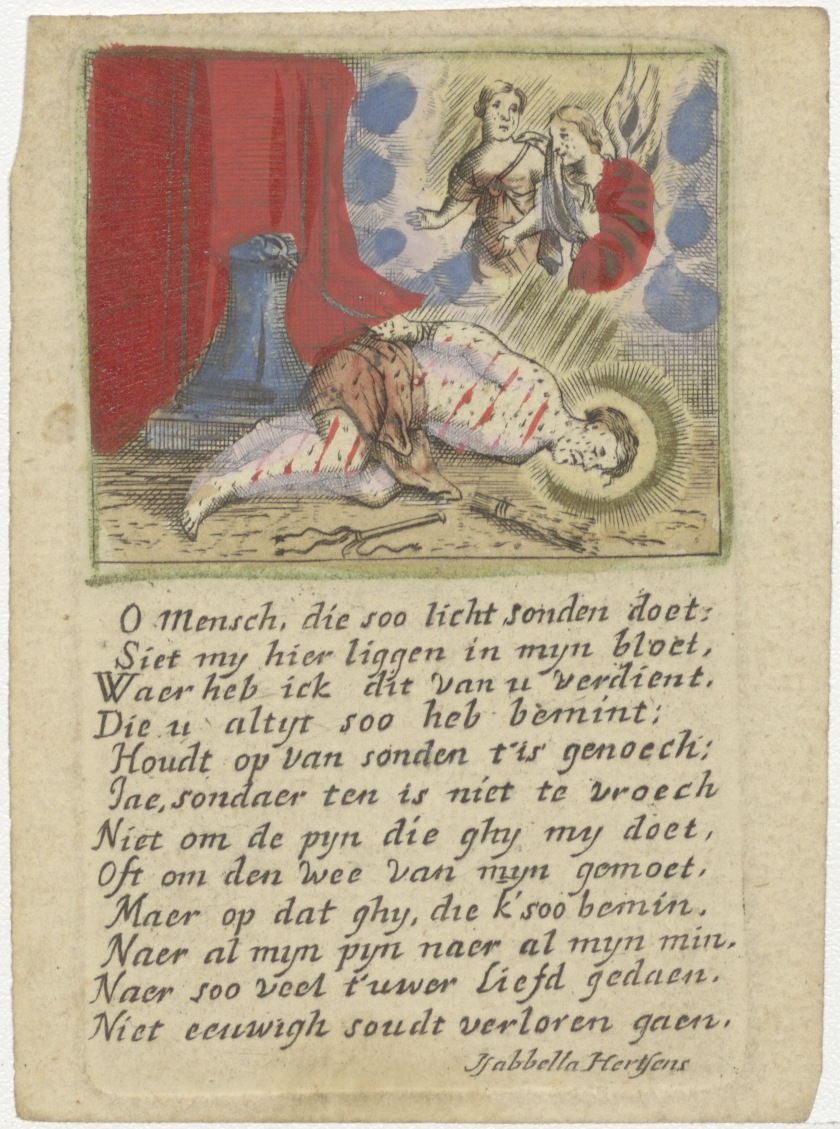 O Mensch, die soo licht sonden doet:
Siet my hier liggen in myn bloet,
Waer heb ick dit van u verdient.
Die u altyt soo heb bemint:
Houdt op van sonden t'is genoech;
Jae, sondaer ten is niet te vroech
Niet om de pyn die ghy my doet,
Oft om den wee van myn gemoet.
Maer op dat ghy, die k'soo bemin.
Naer al myn pyn naer al myn min.
Naer soo veel t'uwer Liefd gedaen.
Niet eeuwigh soudt verloren gaen.
Isabbella Hertsens